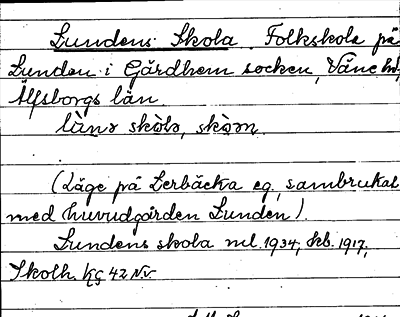 Lundens Skola. Folkskola på
Lunden i Gärdhem socken, Väne hd,
Älfsborgs län.
lùnə skòlɒ, skòɷn
(Läge på Lerbäcka eg. sambrukat
med huvudgården Lunden).
Lundens skola ml. 1934, kb. 1917,
Skolh. kg 42 Nv.